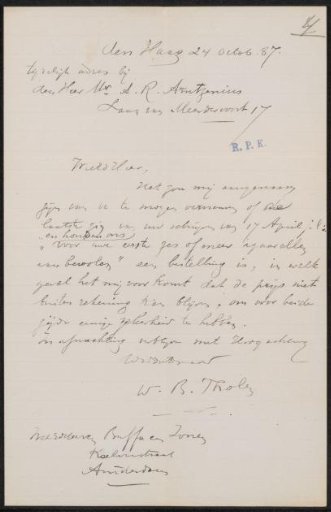 den Haag 24 Octob 87.
tijdelijk adres bij
den Heer Mr. A. R. Arntzenius
Laan van Meerdervoort 17
R.P.K.
WelEdHeer,
Het zou mij aangenaam
zijn van u te mogen vernemen of de
laatste zin van uw schrijven van 17 April j.l.
"en houden ons
voor uwe eerste zes of meer aquarellen
aanbevolen" een bestelling is, in welk
geval het mij voorkomt dat de prijs niet
buiten rekening kan blijven, om voor beide
zijde eenige zekerheid te hebben.
In afwachting verblijf met Hoogachting
W. B. Tholen
Buffa en Zonen
Kalverstraat
Amsterdam